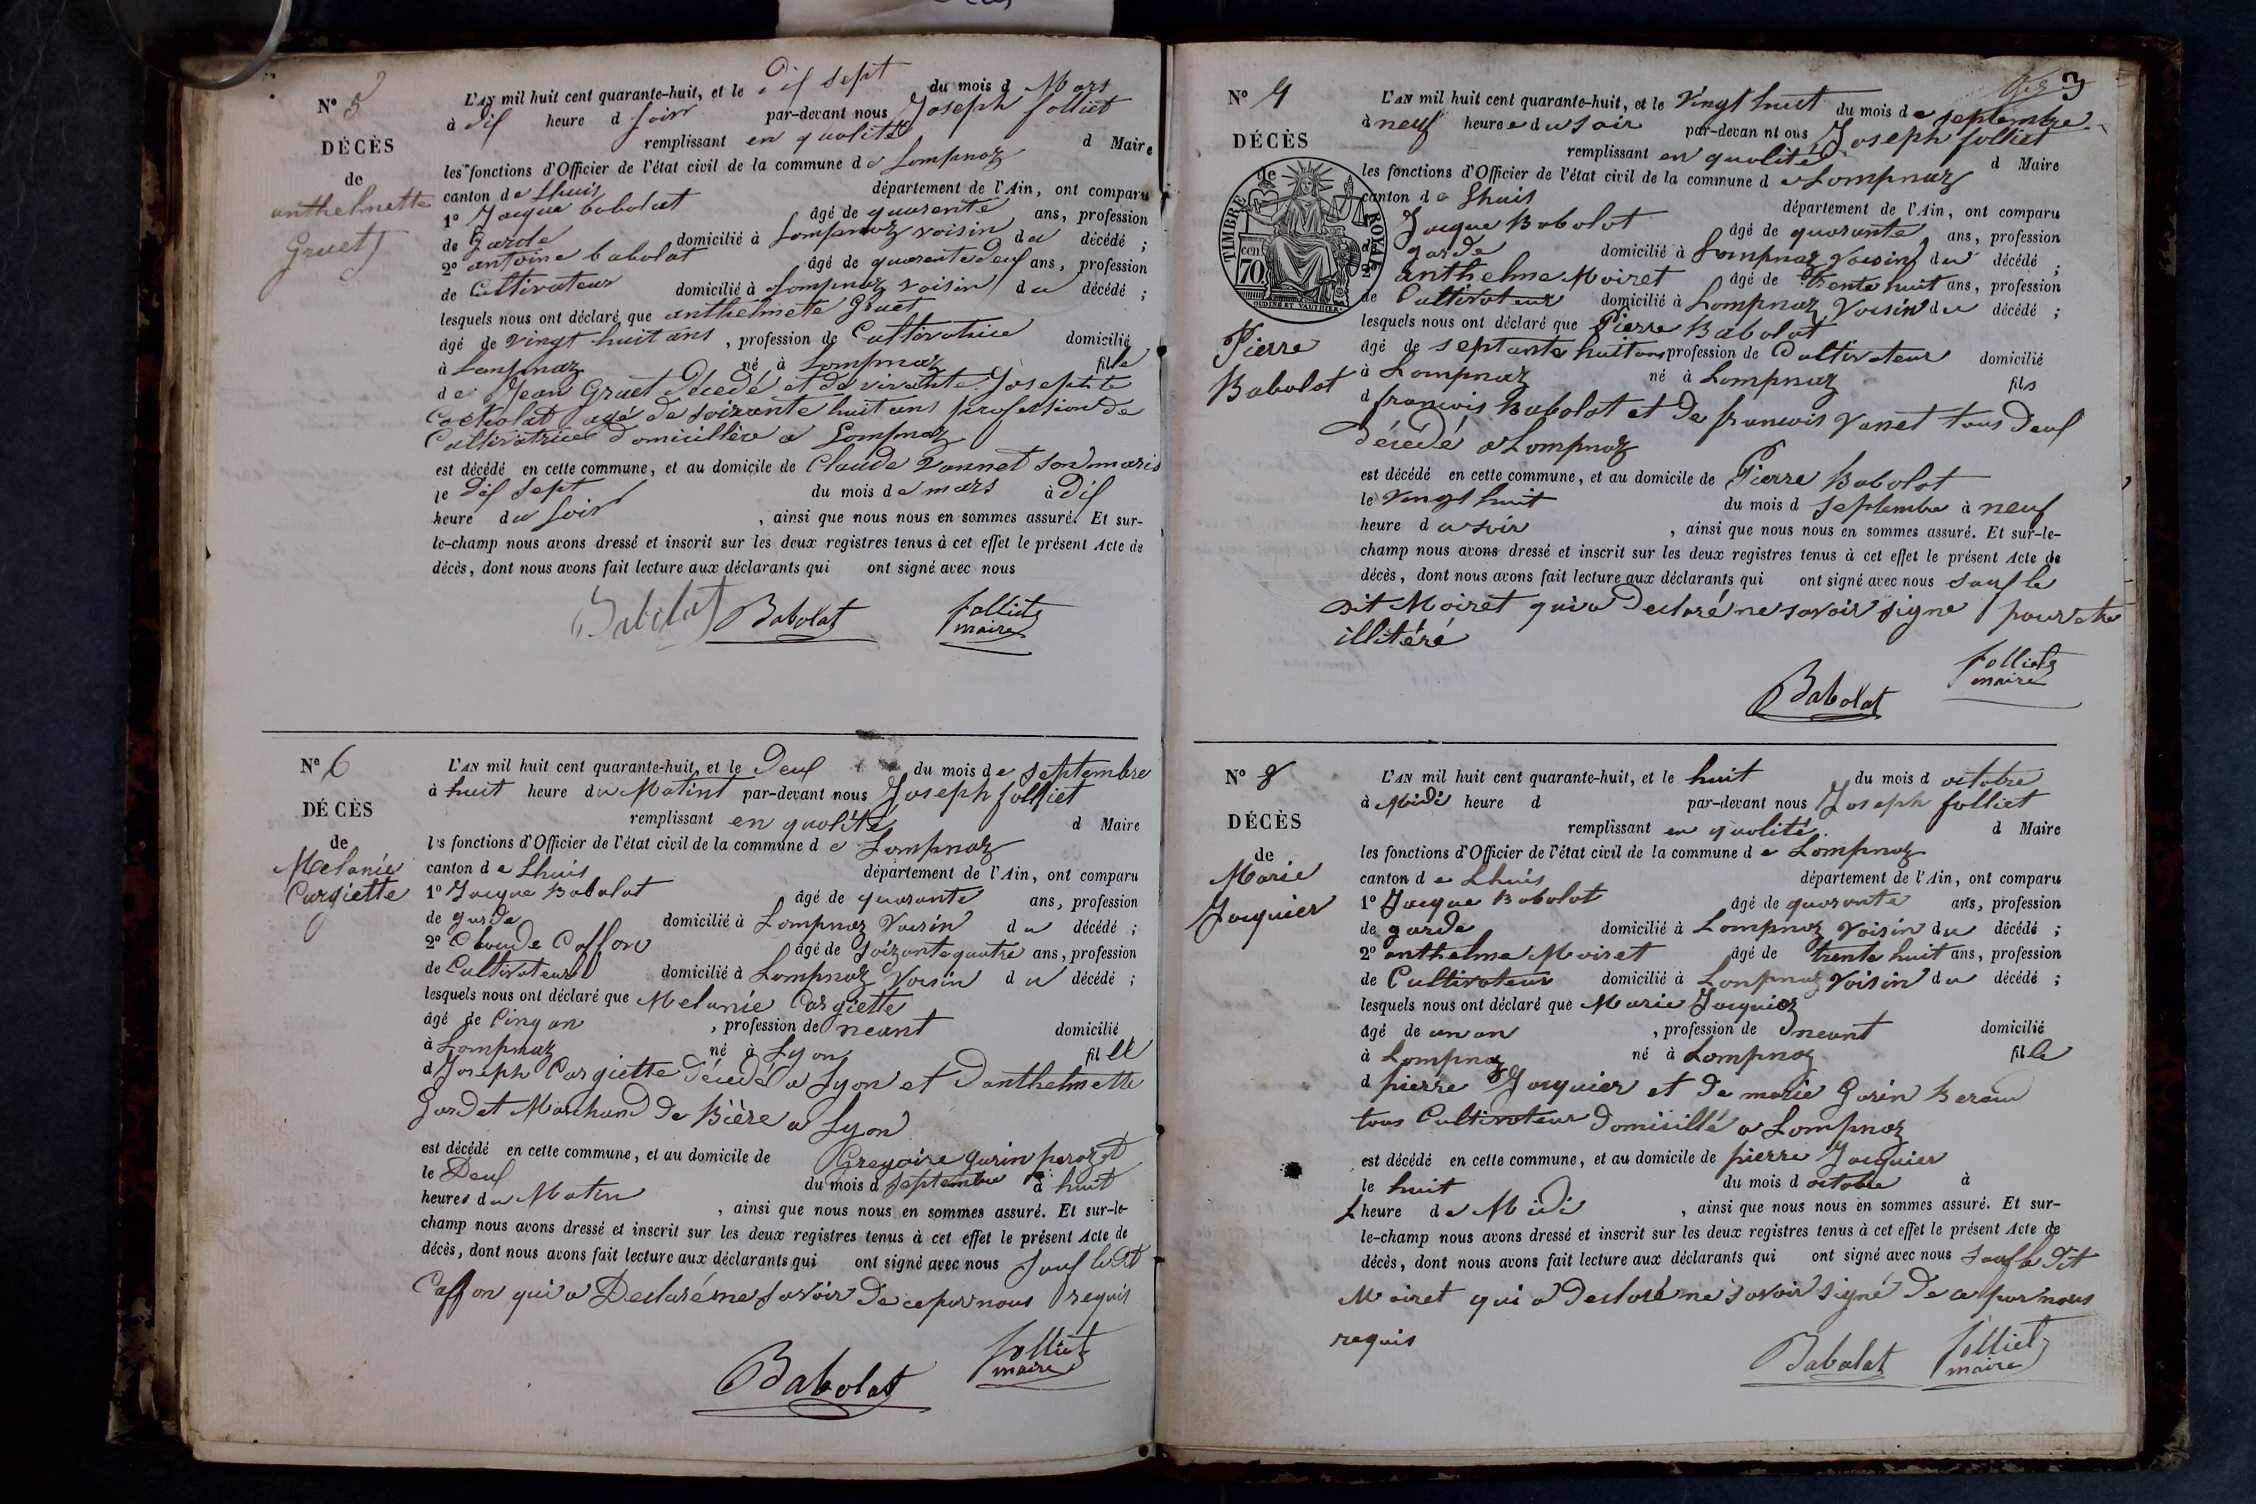 N° 5
DÉCÈS
de
anthelmette
Gruet
L'AN mil huit cent quarante-huit, et le dix sept du mois d Mars
à dix heure d soir par-devant nous Joseph folliet
remplissant en qualité d Maire
les fonctions d'Officier de l'état civil de la commune de Lompnaz
canton de Lhuis département de l'Ain, ont comparu
1° Jacque babolat âgé de quarente ans, profession
de Garde domicilié à Lompnaz voisin du décédé ;
2° antoine babolat âgé de quarente deux ans, profession
de Cultivateur domicilié à Lompnaz voisin du décédé ;
lesquels nous ont déclaré que anthelmete Gruet
âgé de vingt huit ans , profession de Cultivatrice domicilié
à Lompnaz né à Lompnaz fille
de Jean Gruet décédé et de vivante Josephte
Cocholat agé de soixante huit ans profession de
Cultivatrice domicillère a Lompnaz
est décédé en cette commune, et au domicile de Claude Vannet son maris
le dix sept du mois de mars à dix
heure du soir , ainsi que nous nous en sommes assuré. Et sur-
le-champ nous avons dressé et inscrit sur les deux registres tenus à cet effet le présent Acte de
décès, dont nous avons fait lecture aux déclarants qui ont signé avec nous
Babolat Babolat folliet
maire
N° 6
DÉCÈS
de
Melanie
Cargiette
L'AN mil huit cent quarante-huit, et le Deux du mois de septembre
à huit heure du Matint par-devant nous Joseph folliet
remplissant en qualité d Maire
les fonctions d'Officier de l'état civil de la commune de Lompnaz
canton de Lhuis département de l'Ain, ont comparu
1° Jacque Babolat âgé de quarante ans, profession
de garde domicilié à Lompnaz Voisin du décédé ;
2° Cloude Caffon âgé de soizante quatre ans, profession
de Cultivateur domicilié à Lompnaz Voisin du décédé ;
lesquels nous ont déclaré que Melanie Cargiette
âgé de Cinq an , profession de neant domicilié
à Lompnaz né à Lyon fille
d Joseph Cargiette décédé a Lyon et d'anthelmette
Gardet Marchand de Bière a Lyon
est décédé en cette commune, et au domicile de Gregoire Gurin perozet
le Deux du mois d septembre à huit
heures du Matin , ainsi que nous nous en sommes assuré. Et sur-le-
champ nous avons dressé et inscrit sur les deux registres tenus à cet effet le présent Acte de
décès, dont nous avons fait lecture aux déclarants qui ont signé avec nous sauf le dit
Caffon qui a Declaré ne savoir de ce par nous requis
Babolat folliet
maire
3
N° 7
DÉCÈS
de
TIMBRE ROYAL
cen 70.
Pierre
Babolat
L'AN mil huit cent quarante-huit, et le vingt huit du mois de septembre
à neuf heure e du soir par-devan nt ous Joseph folliet
remplissant en qualité d Maire
les fonctions d'Officier de l'état civil de la commune de Lompnaz
canton de Lhuis département de l'Ain, ont comparu
Jacque Babolat âgé de quarante ans, profession
garde domicilié à Lompnaz voisin du décédé ;
anthelme Moiret âgé de trente huit ans, profession
de Cultivateur domicilié à Lompnaz Voisin du décédé ;
lesquels nous ont déclaré que Pierre Babolat
âgé de septante huit ans profession de Cultivateur domicilié
à Lompnaz né à Lompnaz fils
d francois Babolat et de francois Vanet tous deux
décédé a Lompnaz
est décédé en cette commune, et au domicile de Pierre Babolat
le Vingt huit du mois d septembre à neuf
heure du soir , ainsi que nous nous en sommes assuré. Et sur-le-
champ nous avons dressé et inscrit sur les deux registres tenus à cet effet le présent Acte de
décès, dont nous avons fait lecture aux déclarants qui ont signé avec nous sauf le
dit Moiret qui a Declaré ne savoir signe pour etre
illitéré
Babolat folliet
maire
N° 8
DÉCÈS
de
Marie
Jacquier
L'AN mil huit cent quarante-huit, et le huit du mois d octobre
à Midi heure d par-devant nous Joseph folliet
remplissant en qualité d Maire
les fonctions d'Officier de l'état civil de la commune de Lompnaz
canton de Lhuis département de l'Ain, ont comparu
1° Jacque Babolat âgé de quarante ans, profession
de garde domicilié à Lompnaz Voisin du décédé ;
2° anthelme Moiret âgé de trente huit ans, profession
de Cultivateur domicilié à Lonpnaz Voisin du décédé ;
lesquels nous ont déclaré que Marie Jacquiez
âgé de un an , profession de neant domicilié
à Lompnaz né à Lompnaz fille
d pierre Jacquier et de marie Gurin Beraud
tous Cultivateur domicillé a Lompnaz
est décédé en cette commune, et au domicile de pierre Jacquier
le huit du mois d octobre à
L heure de Midi , ainsi que nous nous en sommes assuré. Et sur-
le-champ nous avons dressé et inscrit sur les deux registres tenus à cet effet le présent Acte de
décès, dont nous avons fait lecture aux déclarants qui ont signé avec nous sauf le dit
Moiret qui a declaré ne savoir signé de ce par nous
requis
Babolat folliet
maire